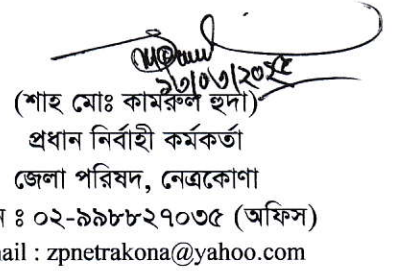 ১৩/০৩/২০২৫
(শাহ মোঃ কামরুল হুদা)
প্রধান নির্বাহী কর্মকর্তা
জেলা পরিষদ, নেত্রকোণা
ন ঃ ০২-৯৯৮৮২৭০৩৫ (অফিস)
nail : zpnetrakona@yahoo.com